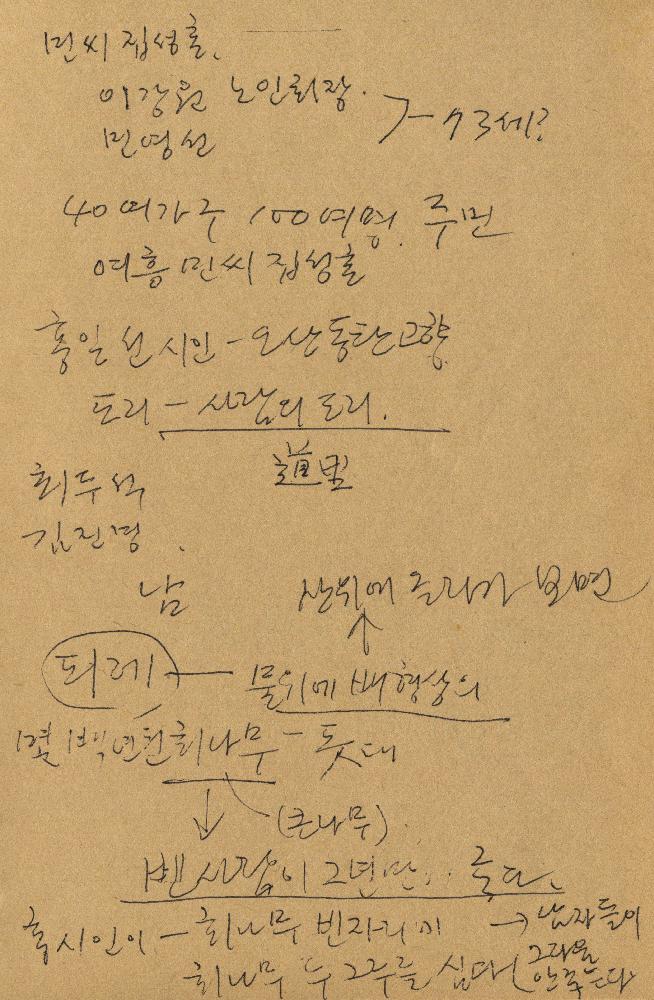 민씨 집성촌.
이강원 노인회장.
민영선 > - 73세?
40여가구 100여명. 주민
여흥 민씨 집성촌
홍일선 시인 - 오산동탄고향
도리 - 사람의 도리.
道里
최두석
김진경.
남 산위에 올라가 보면
↑
되레 - 물위에 배형상의
몇백년된 회나무 - 돛대
↓ (큰나무)
벤 사람이 2년만 죽다.
홍시인이 - 회나무 빈자리에 → 남자들이
회나무 두 그루를 심다 ( 그다음 안죽는다